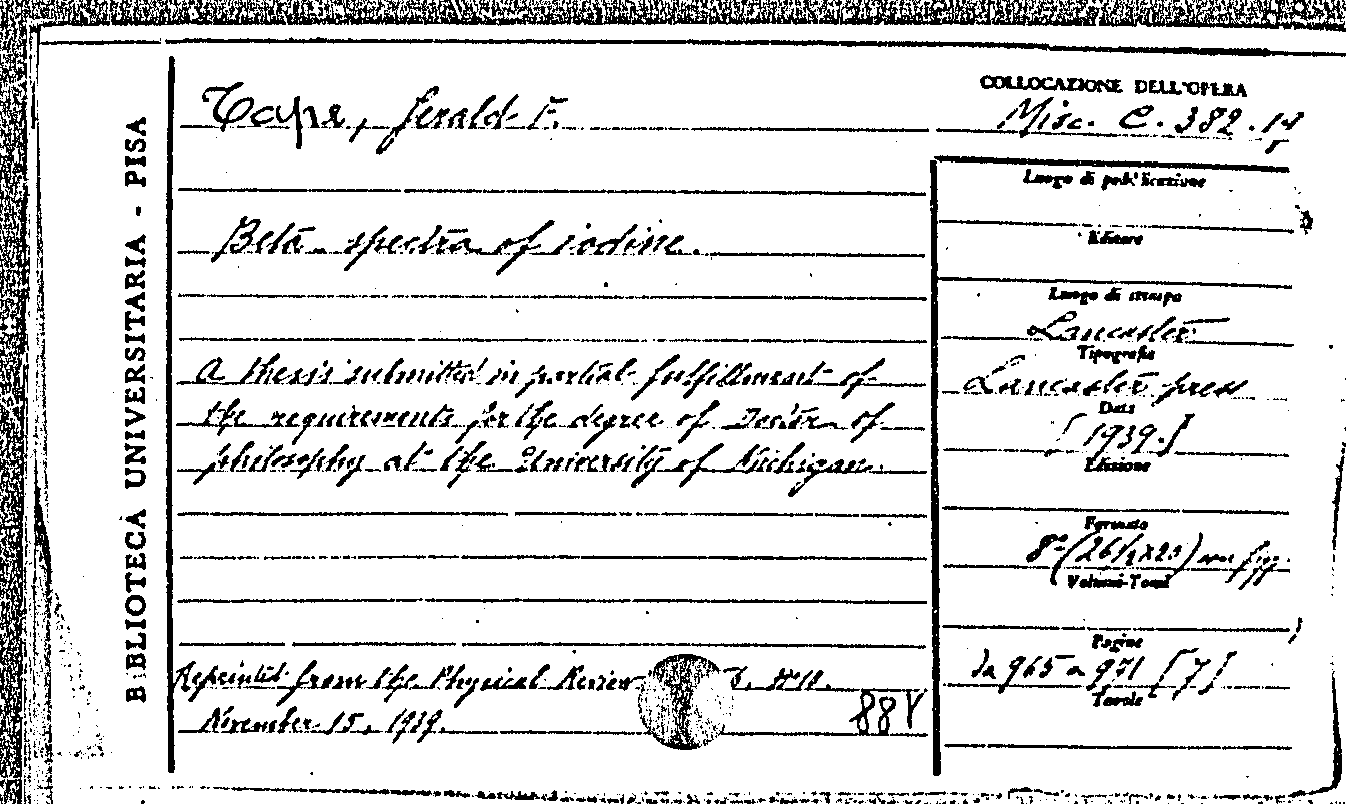 BIBLIOTECA UNIVERSITARIA - PISA
Tape, Gerald F.
Beta-spectra of iodine.
A thesis submitted in partial fulfillment of
the requirements for the degree of Doctor of
philosophy at the University of Michigan.
Reprinted from the Physical Review
November 15, 1939.
COLLOCAZIONE DELL'OPERA
Misc. C. 382.14
Luogo di pubblicazione
Editore
Luogo di stampa
Lancaster
Tipografia
Lancaster press
Data
[1939.]
Edizione
Formato
8°-(26½x20) con fig.
Volumi-Tomi
Pagine
da 965 a 971 [7]
Tavole